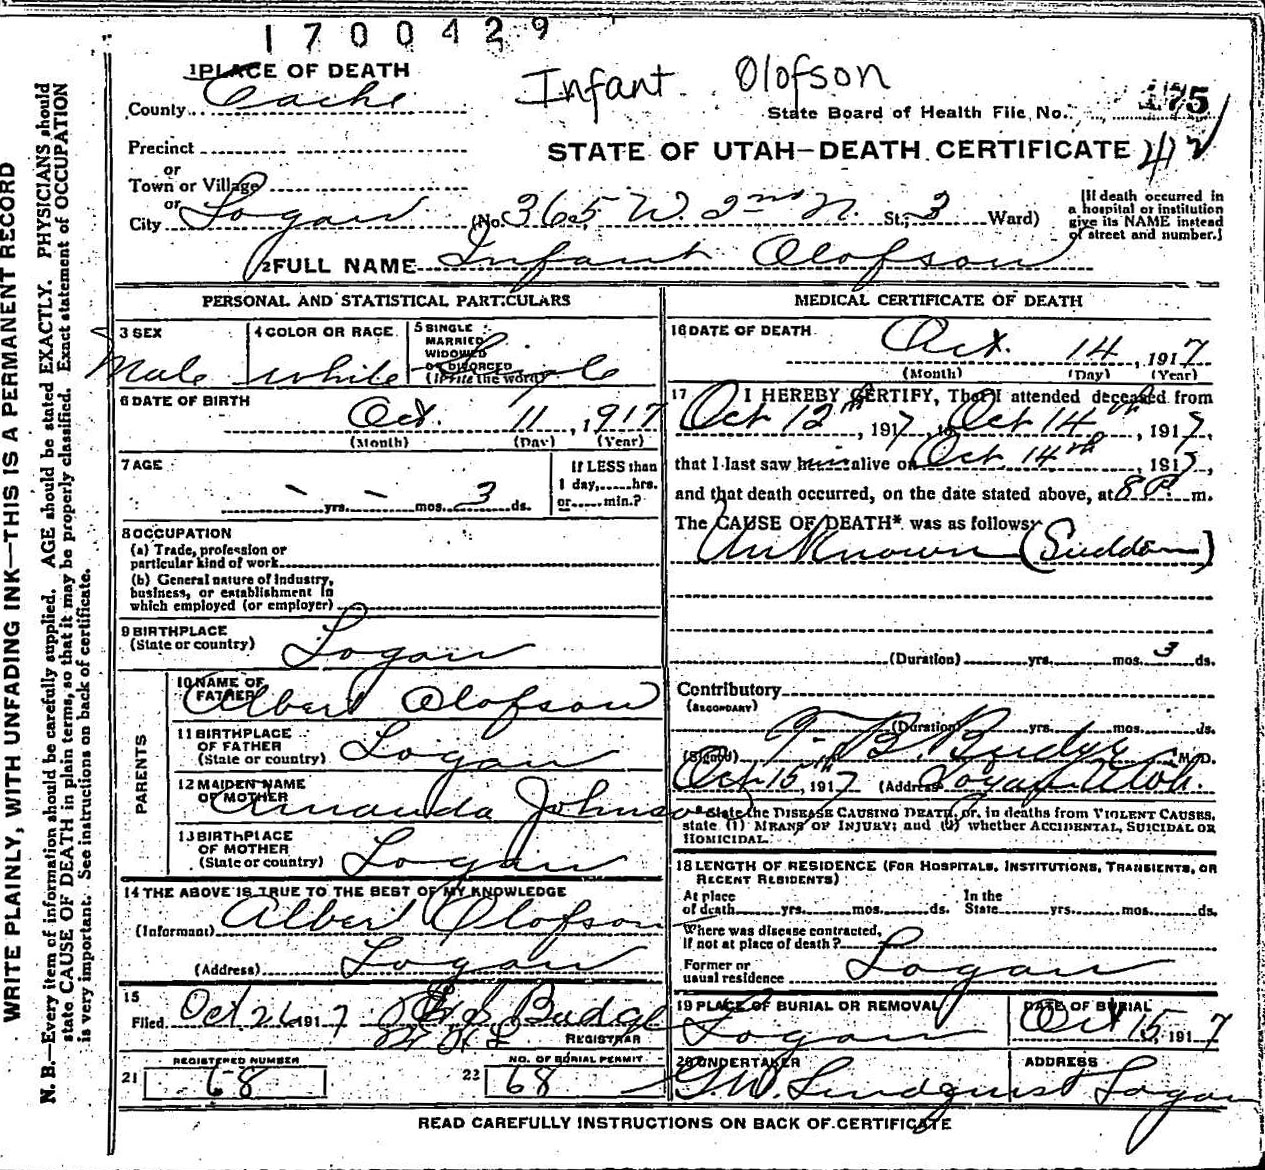 1700429
Infant Olofson
1 PLACE OF DEATH
County Cache
State Board of Health File No. 175
Precinct
or
Town or Village
or
City Logan
STATE OF UTAH—DEATH CERTIFICATE
(No. 365 W. 2nd N. St.; 3 Ward)
[If death occurred in
a hospital or institution
give its NAME instead
of street and number.]
2 FULL NAME Infant Olofson
PERSONAL AND STATISTICAL PARTICULARS
3 SEX
Male
4 COLOR OR RACE
white
5 SINGLE
MARRIED
WIDOWED
OR DIVORCED
(Write the word)
Single
6 DATE OF BIRTH
Oct. 11, 1917
(Month) (Day) (Year)
7 AGE
- yrs. - mos. 3 ds.
If LESS than
1 day, hrs.
or min.?
8 OCCUPATION
(a) Trade, profession or
particular kind of work
(b) General nature of industry,
business, or establishment in
which employed (or employer)
9 BIRTHPLACE
(State or country) Logan
PARENTS
10 NAME OF
FATHER Albert Olofson
11 BIRTHPLACE
OF FATHER
(State or country) Logan
12 MAIDEN NAME
OF MOTHER Amanda Johnson
13 BIRTHPLACE
OF MOTHER
(State or country) Logan
14 THE ABOVE IS TRUE TO THE BEST OF MY KNOWLEDGE
(Informant) Albert Olofson
(Address) Logan
15
Filed Oct 26 1917 Budge
REGISTRAR
REGISTERED NUMBER
21 68
NO. OF BURIAL PERMIT
22 68
MEDICAL CERTIFICATE OF DEATH
16 DATE OF DEATH
Oct. 14, 1917
(Month) (Day) (Year)
17 I HEREBY CERTIFY, That I attended deceased from
Oct 12th, 1917, to Oct 14th, 1917,
that I last saw him alive on Oct. 14th, 1917,
and that death occurred, on the date stated above, at 8 P. m.
The CAUSE OF DEATH* was as follows:
Unknown (Sudden)
(Duration) yrs. mos. 3 ds.
Contributory
(SECONDARY)
(Duration) yrs. mos. ds.
(Signed) T. B. Budge M.D.
Oct 15th, 1917 (Address) Logan Utah.
* State the DISEASE CAUSING DEATH, or, in deaths from VIOLENT CAUSES,
state (1) MEANS OF INJURY; and (2) whether ACCIDENTAL, SUICIDAL OR
HOMICIDAL.
18 LENGTH OF RESIDENCE (FOR HOSPITALS, INSTITUTIONS, TRANSIENTS, OR
RECENT RESIDENTS)
At place
of death yrs. mos. ds.
In the
State yrs. mos. ds.
Where was disease contracted,
if not at place of death?
Former or
usual residence Logan
19 PLACE OF BURIAL OR REMOVAL
Logan
DATE OF BURIAL
Oct 15, 1917
20 UNDERTAKER
G.W. Lindquist
ADDRESS
Logan
READ CAREFULLY INSTRUCTIONS ON BACK OF CERTIFICATE
WRITE PLAINLY, WITH UNFADING INK—THIS IS A PERMANENT RECORD
N. B.—Every item of information should be carefully supplied. AGE should be stated EXACTLY. PHYSICIANS should
state CAUSE OF DEATH in plain terms, so that it may be properly classified. Exact statement of OCCUPATION
is very important. See instructions on back of certificate.